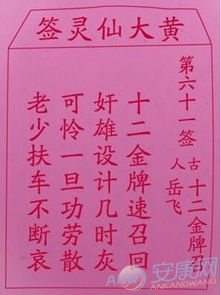 黄大仙灵签
第六十一签
古人 十二金牌召岳飞
十二金牌速召回
奸雄设计几时灰
可怜一旦功劳散
老少扶车不断哀
安康网
ANKANGWANG